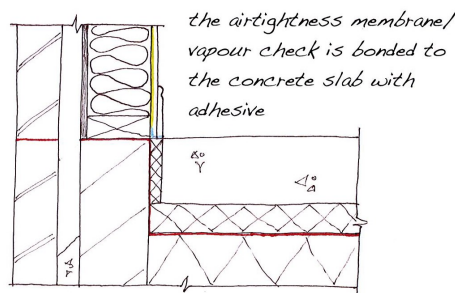 the airtightness membrane/
vapour check is bonded to
the concrete slab with
adhesive